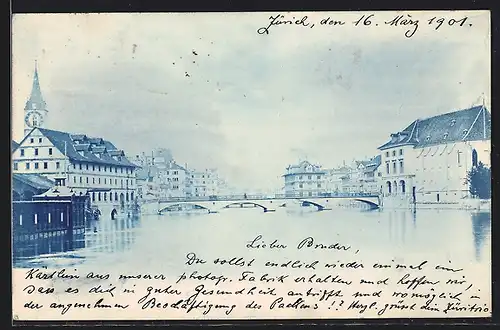 Zürich, den 16. März 1901.
Lieber Bruder,
Du sollst endlich wieder einmal ein
Kärtlein aus unserer photogr. Fabrik erhalten und hoffen wir,
dass es dich in guter Gesundheit antrifft und womöglich in
der angenehmen Beschäftigung des Packens!? Herzl. grüsst dein Züritrio